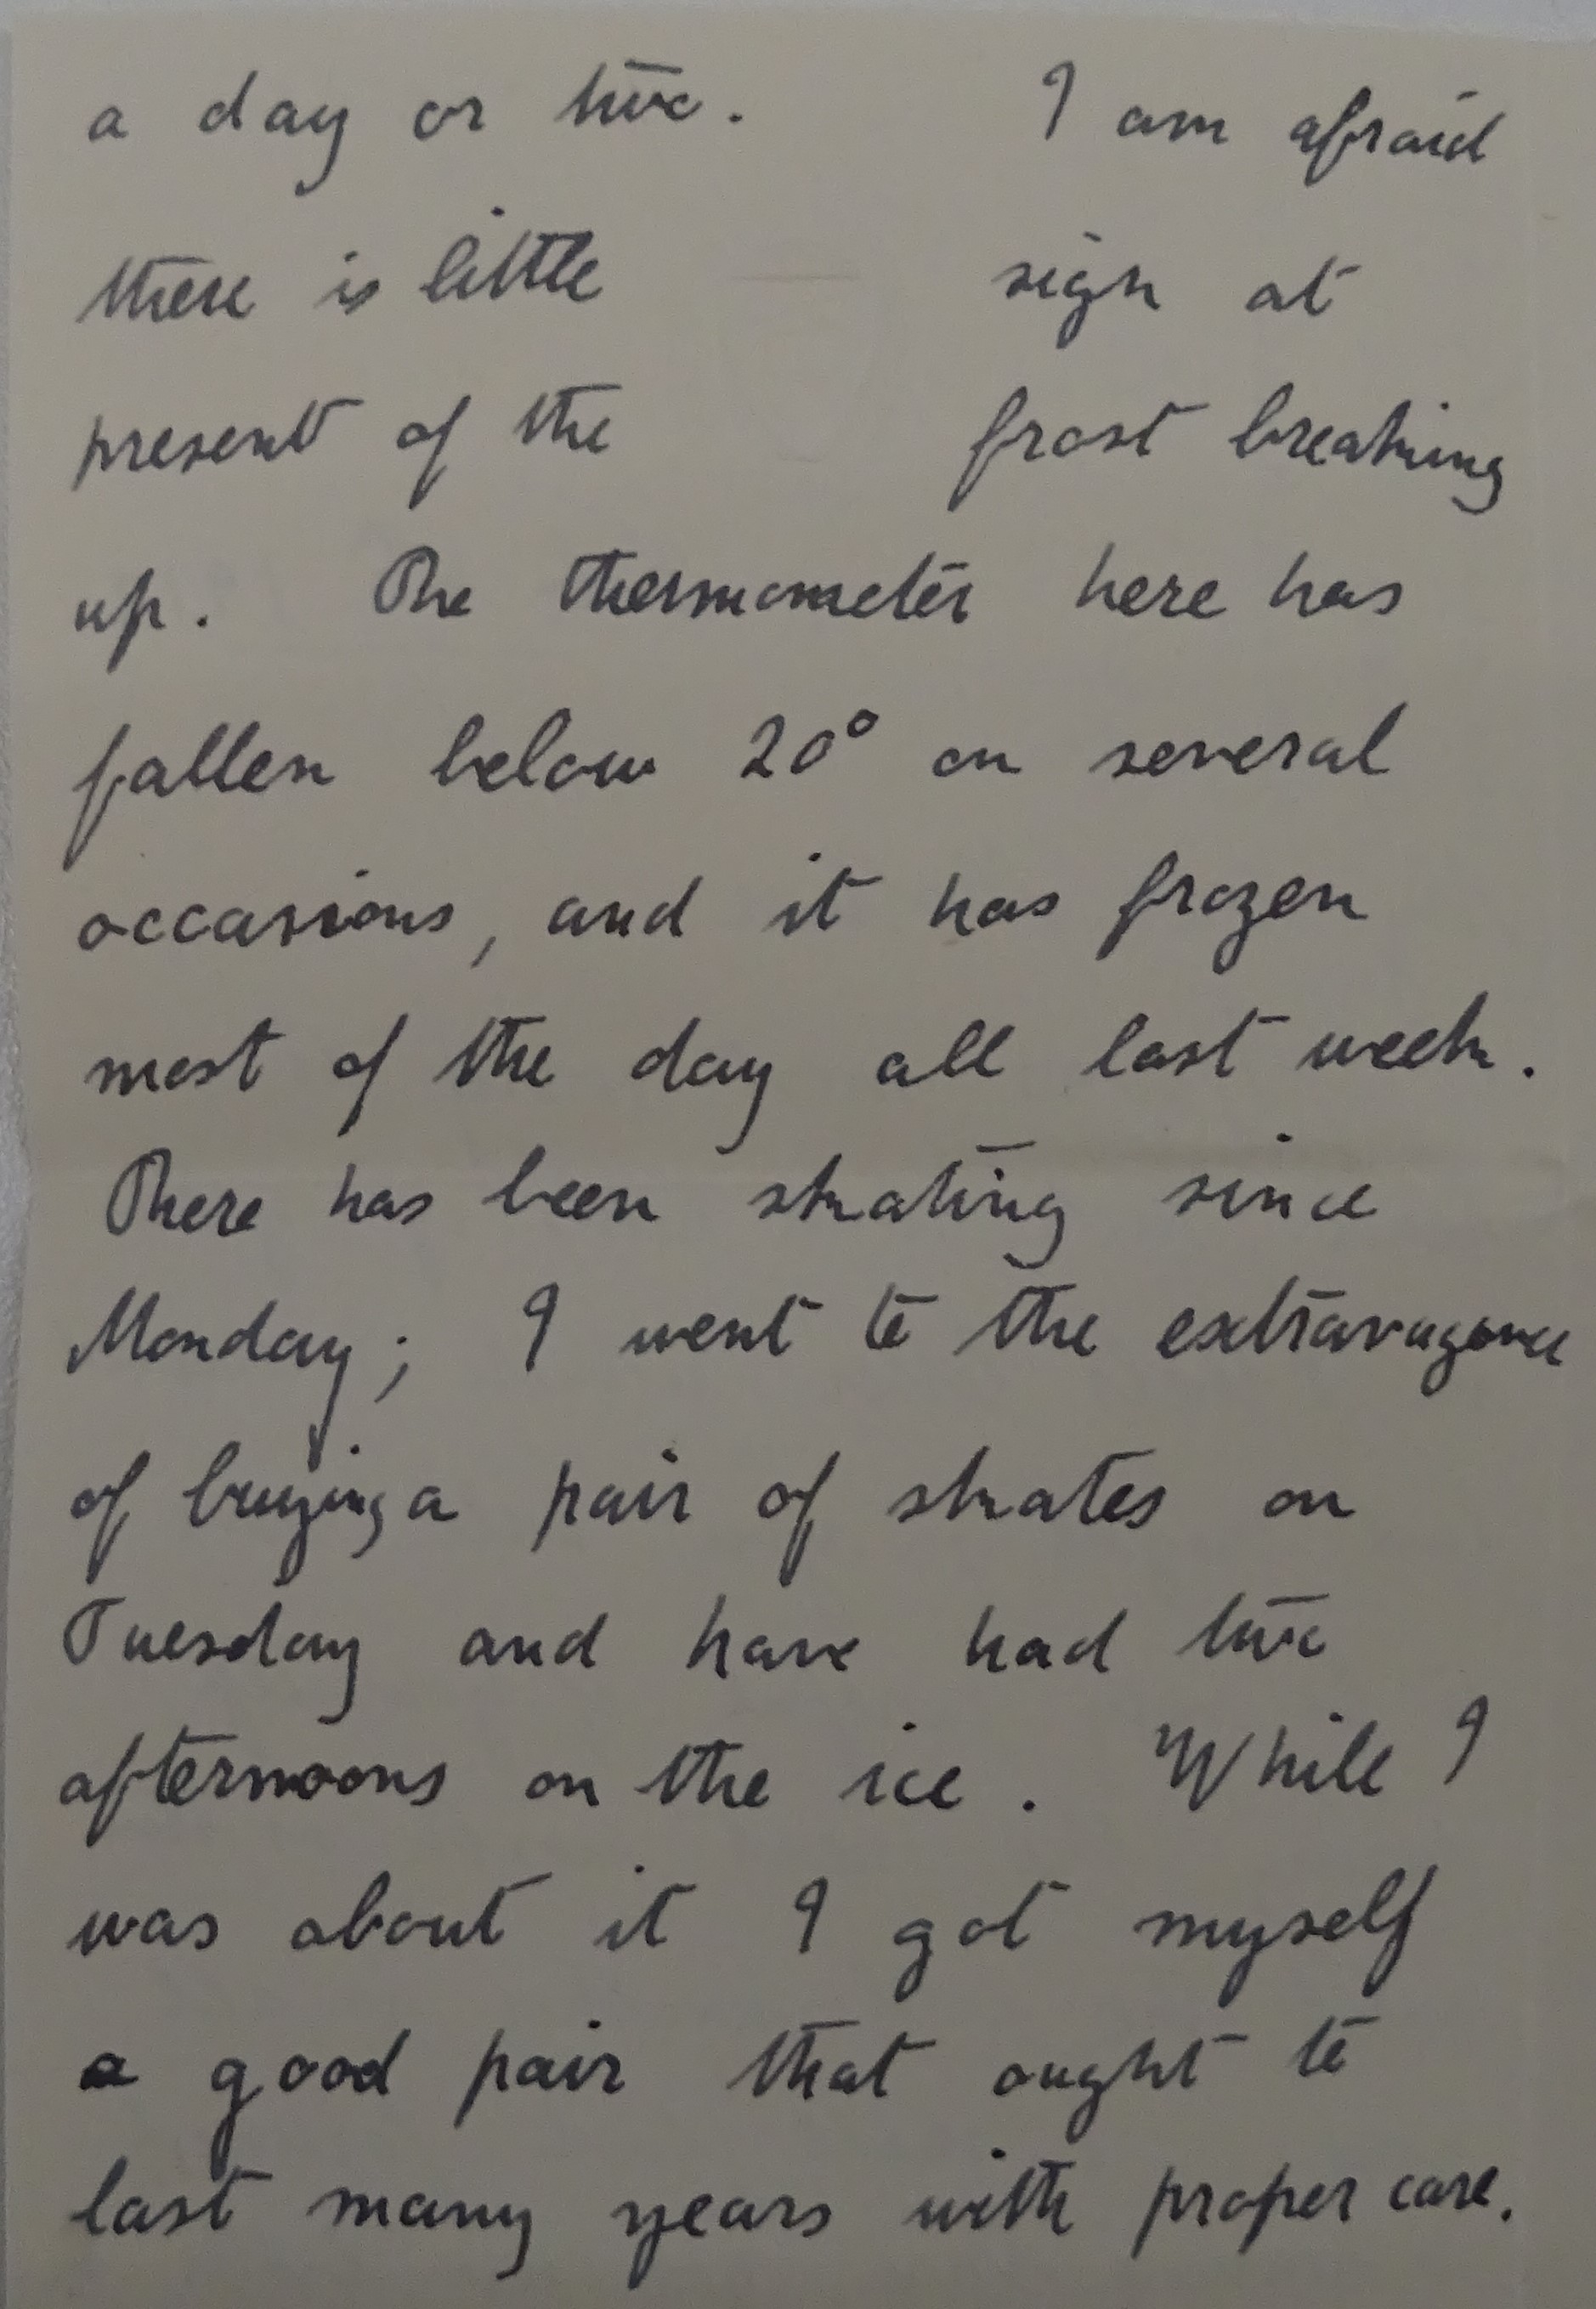 a day or two. I am afraid
there is little sign at
present of the frost breaking
up. The thermometer here has
fallen below 20° on several
occasions, and it has frozen
most of the day all last week.
There has been skating since
Monday; I went to the extravagance
of buying a pair of skates on
Tuesday and have had two
afternoons on the ice. While I
was about it I got myself
a good pair that ought to
last many years with proper care.